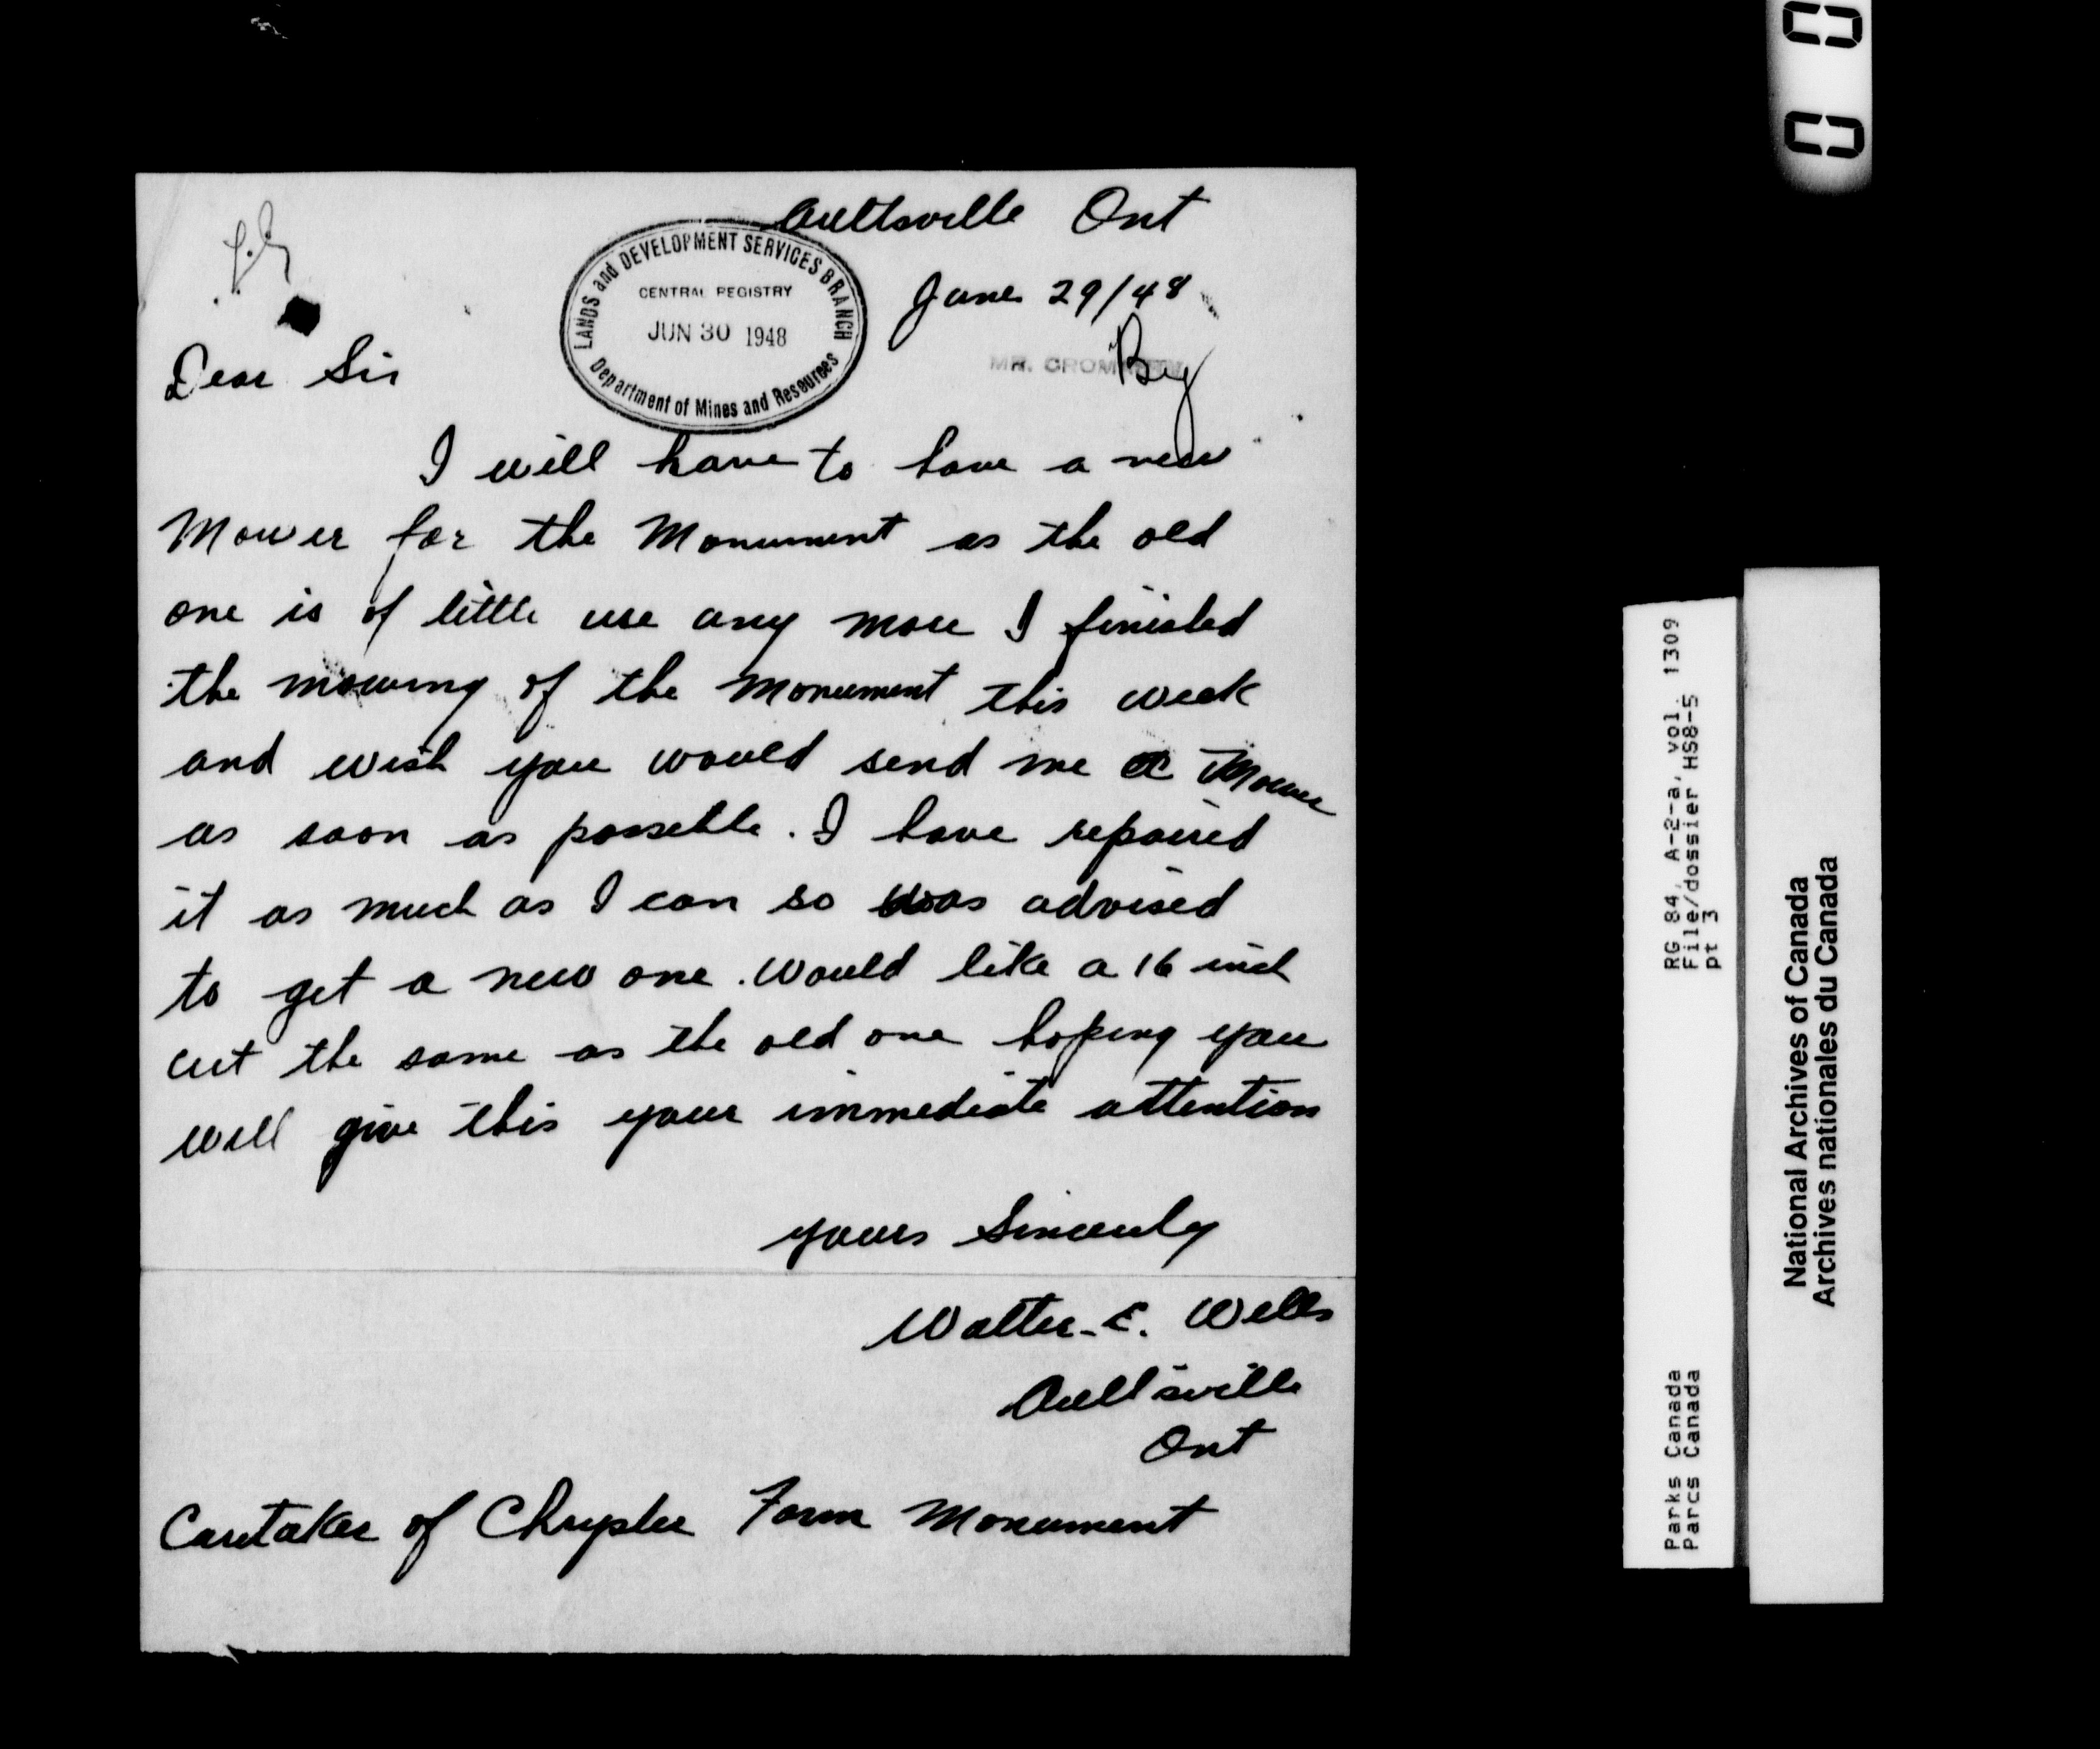 Aultsville Ont
LANDS and DEVELOPMENT SERVICES BRANCH
CENTRAL REGISTRY
JUN 30 1948
Department of Mines and Resources
June 29/48
MR.
Dear Sir
I will have to have a new
Mower for the Monument as the old
one is of little use any more I finished
the mowing of the Monument this week
and wish you would send me a Mower
as soon as possible. I have repaired
it as much as I can so was advised
to get a new one. Would like a 16 inch
cut the same as the old one hoping you
will give this your immediate attention
yours Sincerely
Walter. E. Wells
Aultsville
Ont
Caretaker of Chrysler Farm Monument
RG 84, A-2-a, vol. 1309
File/dossier HS8-5
pt 3
Parks Canada
Parcs Canada
National Archives of Canada
Archives nationales du Canada